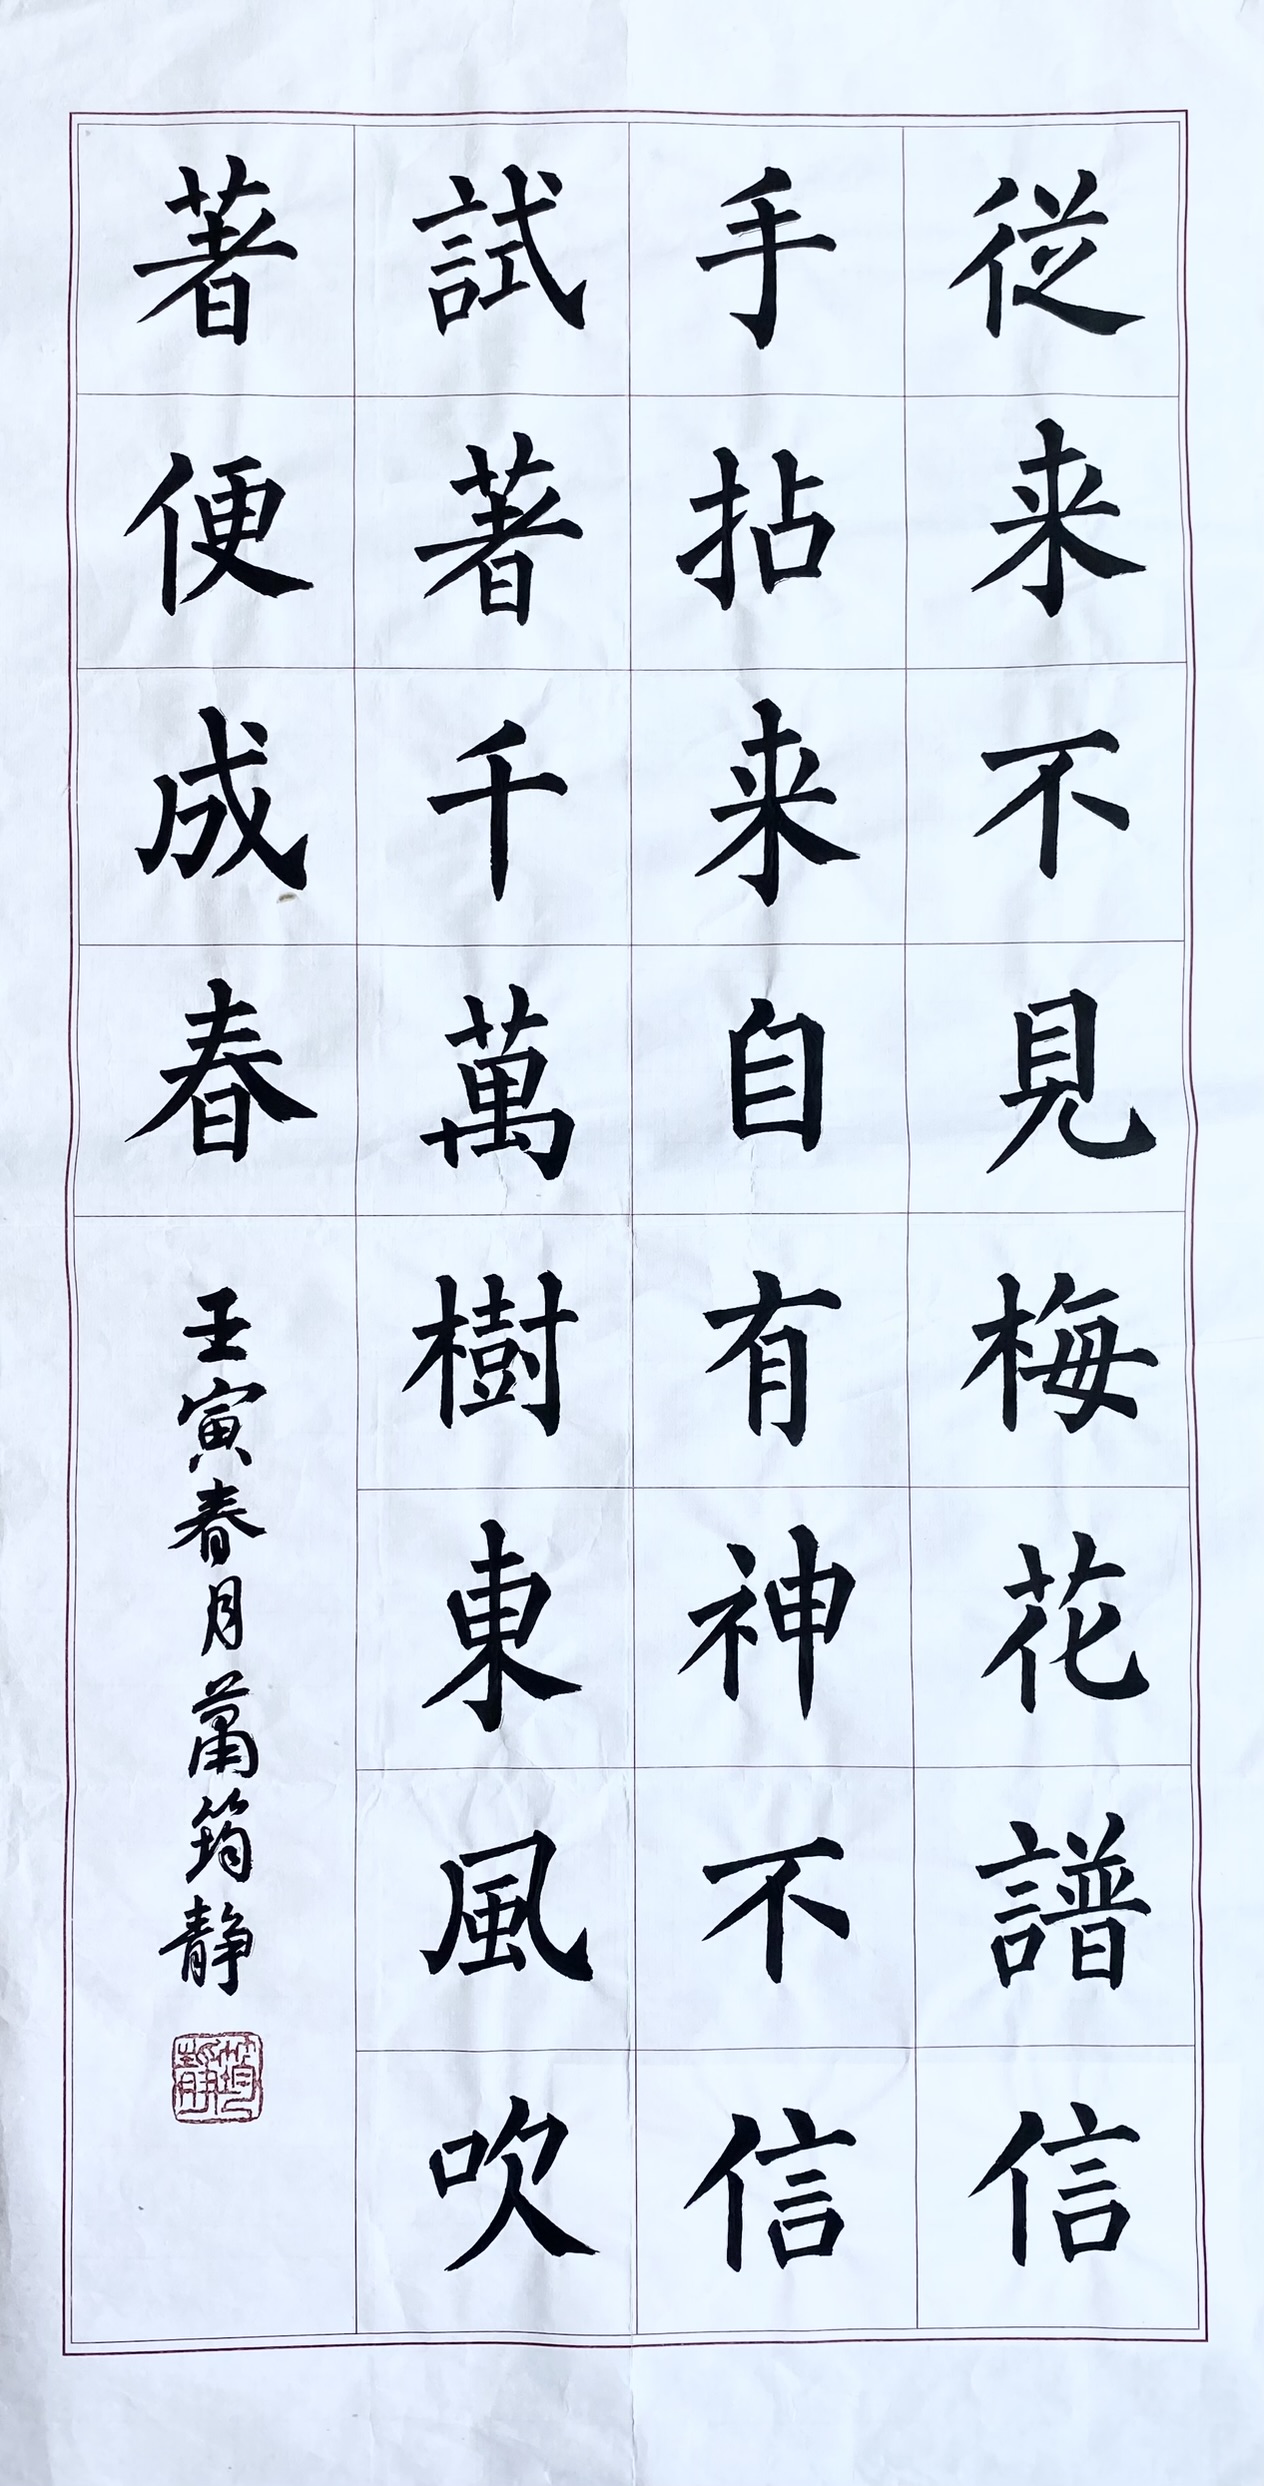 従来不見梅花譜信
手拈来自有神不信
試著千萬樹東風吹
著便成春
壬寅春月蕭筠静
筠靜